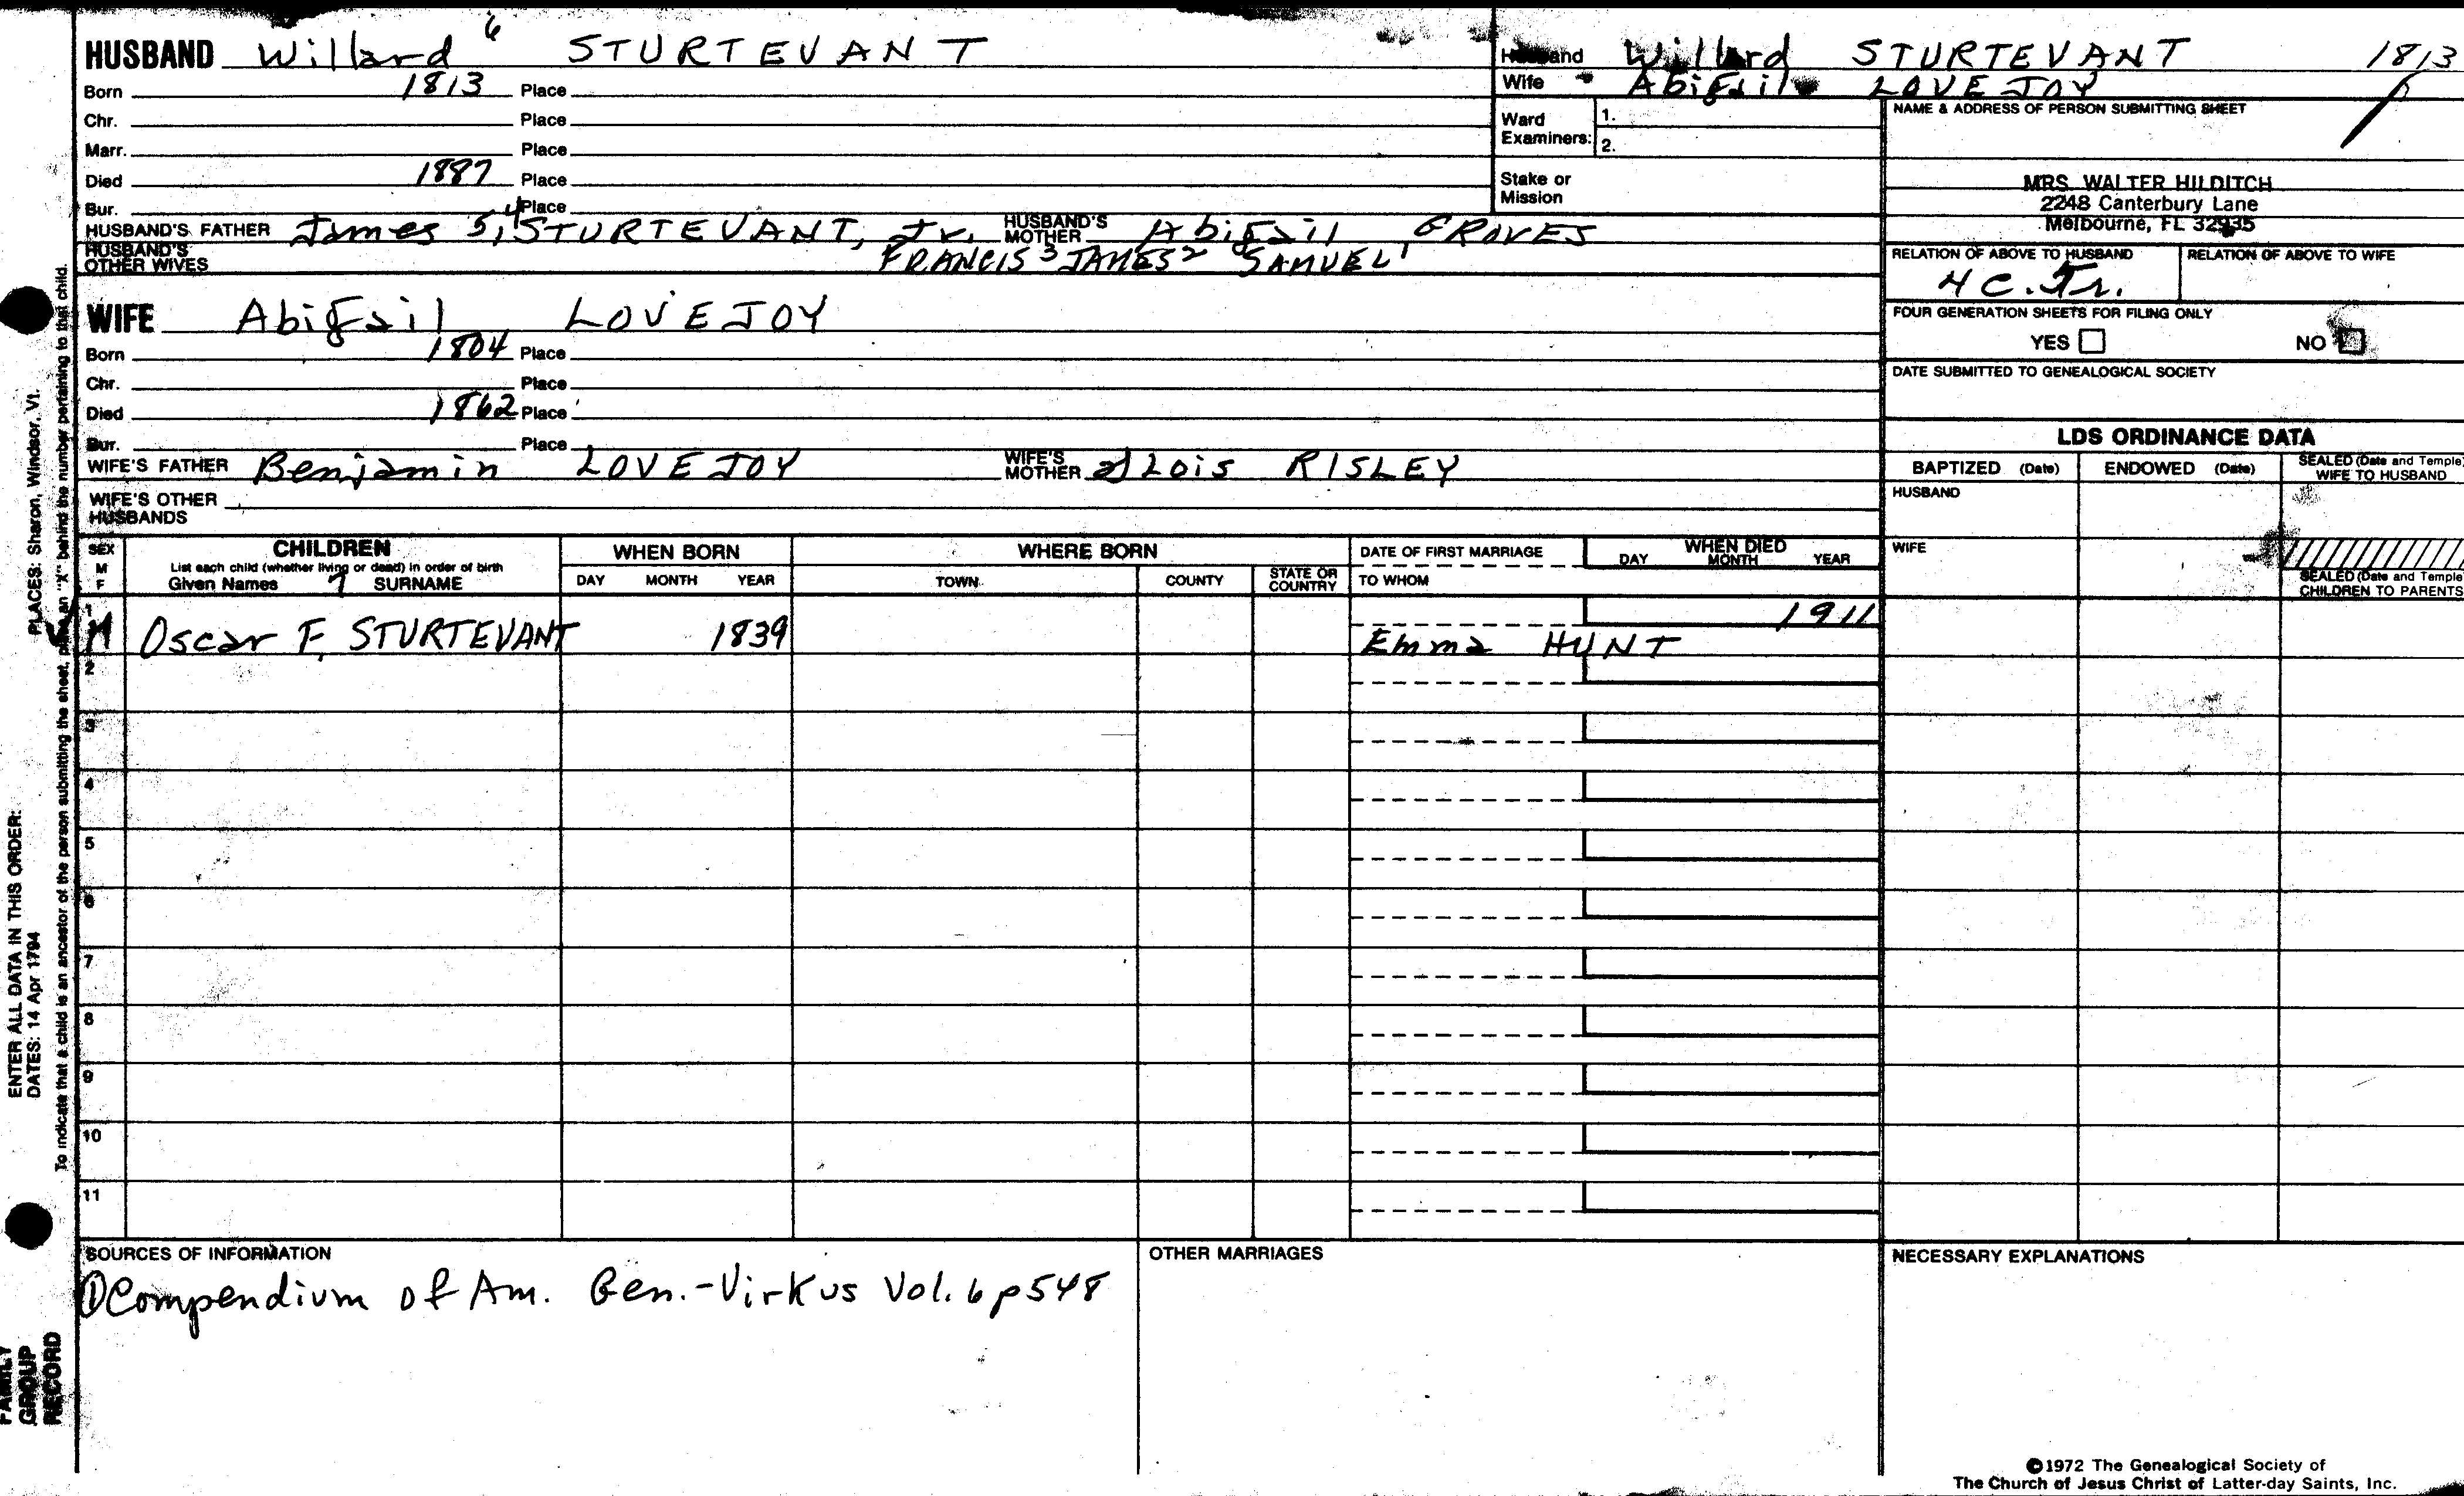 HUSBAND Willard 6 STURTEVANT
Born 1813 Place
Chr. Place
Marr. Place
Died 1887 Place
Bur. Place
HUSBAND'S FATHER James 5,4 STURTEVANT, Jr. HUSBAND'S MOTHER Abigail GROVES
HUSBAND'S OTHER WIVES FRANCIS 3 JAMES 2 SAMUEL 1
WIFE Abigail LOVEJOY
Born 1804 Place
Chr. Place
Died 1862 Place
Bur. Place
WIFE'S FATHER Benjamin LOVEJOY WIFE'S MOTHER 2) Lois RISLEY
WIFE'S OTHER
HUSBANDS
Husband Willard STURTEVANT 1813
Wife Abigail LOVEJOY
Ward Examiners: 1.
2.
Stake or
Mission
NAME & ADDRESS OF PERSON SUBMITTING SHEET
MRS. WALTER HILDITCH
2248 Canterbury Lane
Melbourne, FL 32935
RELATION OF ABOVE TO HUSBAND RELATION OF ABOVE TO WIFE
4 C. Tr.
FOUR GENERATION SHEETS FOR FILING ONLY
YES NO
DATE SUBMITTED TO GENEALOGICAL SOCIETY
LDS ORDINANCE DATA
BAPTIZED (Date) ENDOWED (Date) SEALED (Date and Temple) WIFE TO HUSBAND
HUSBAND
WIFE
SEALED (Date and Temple)
CHILDREN TO PARENTS
SEX M F CHILDREN WHEN BORN WHERE BORN DATE OF FIRST MARRIAGE WHEN DIED
List each child (whether living or dead) in order of birth
Given Names 7 SURNAME DAY MONTH YEAR TOWN COUNTY STATE OR COUNTRY TO WHOM DAY MONTH YEAR
1 1911
M Oscar F. STURTEVANT 1839 Emma HUNT
2
3
4
5
6
7
8
9
10
11
SOURCES OF INFORMATION OTHER MARRIAGES NECESSARY EXPLANATIONS
① Compendium of Am. Gen. - Virkus Vol. 6 p 548
©1972 The Genealogical Society of
The Church of Jesus Christ of Latter-day Saints, Inc.
ENTER ALL DATA IN THIS ORDER:
DATES: 14 Apr 1794 PLACES: Sharon, Windsor, Vt.
To indicate that a child is an ancestor of the person submitting the sheet, place an "X" behind the number pertaining to that child.
FAMILY
GROUP
RECORD